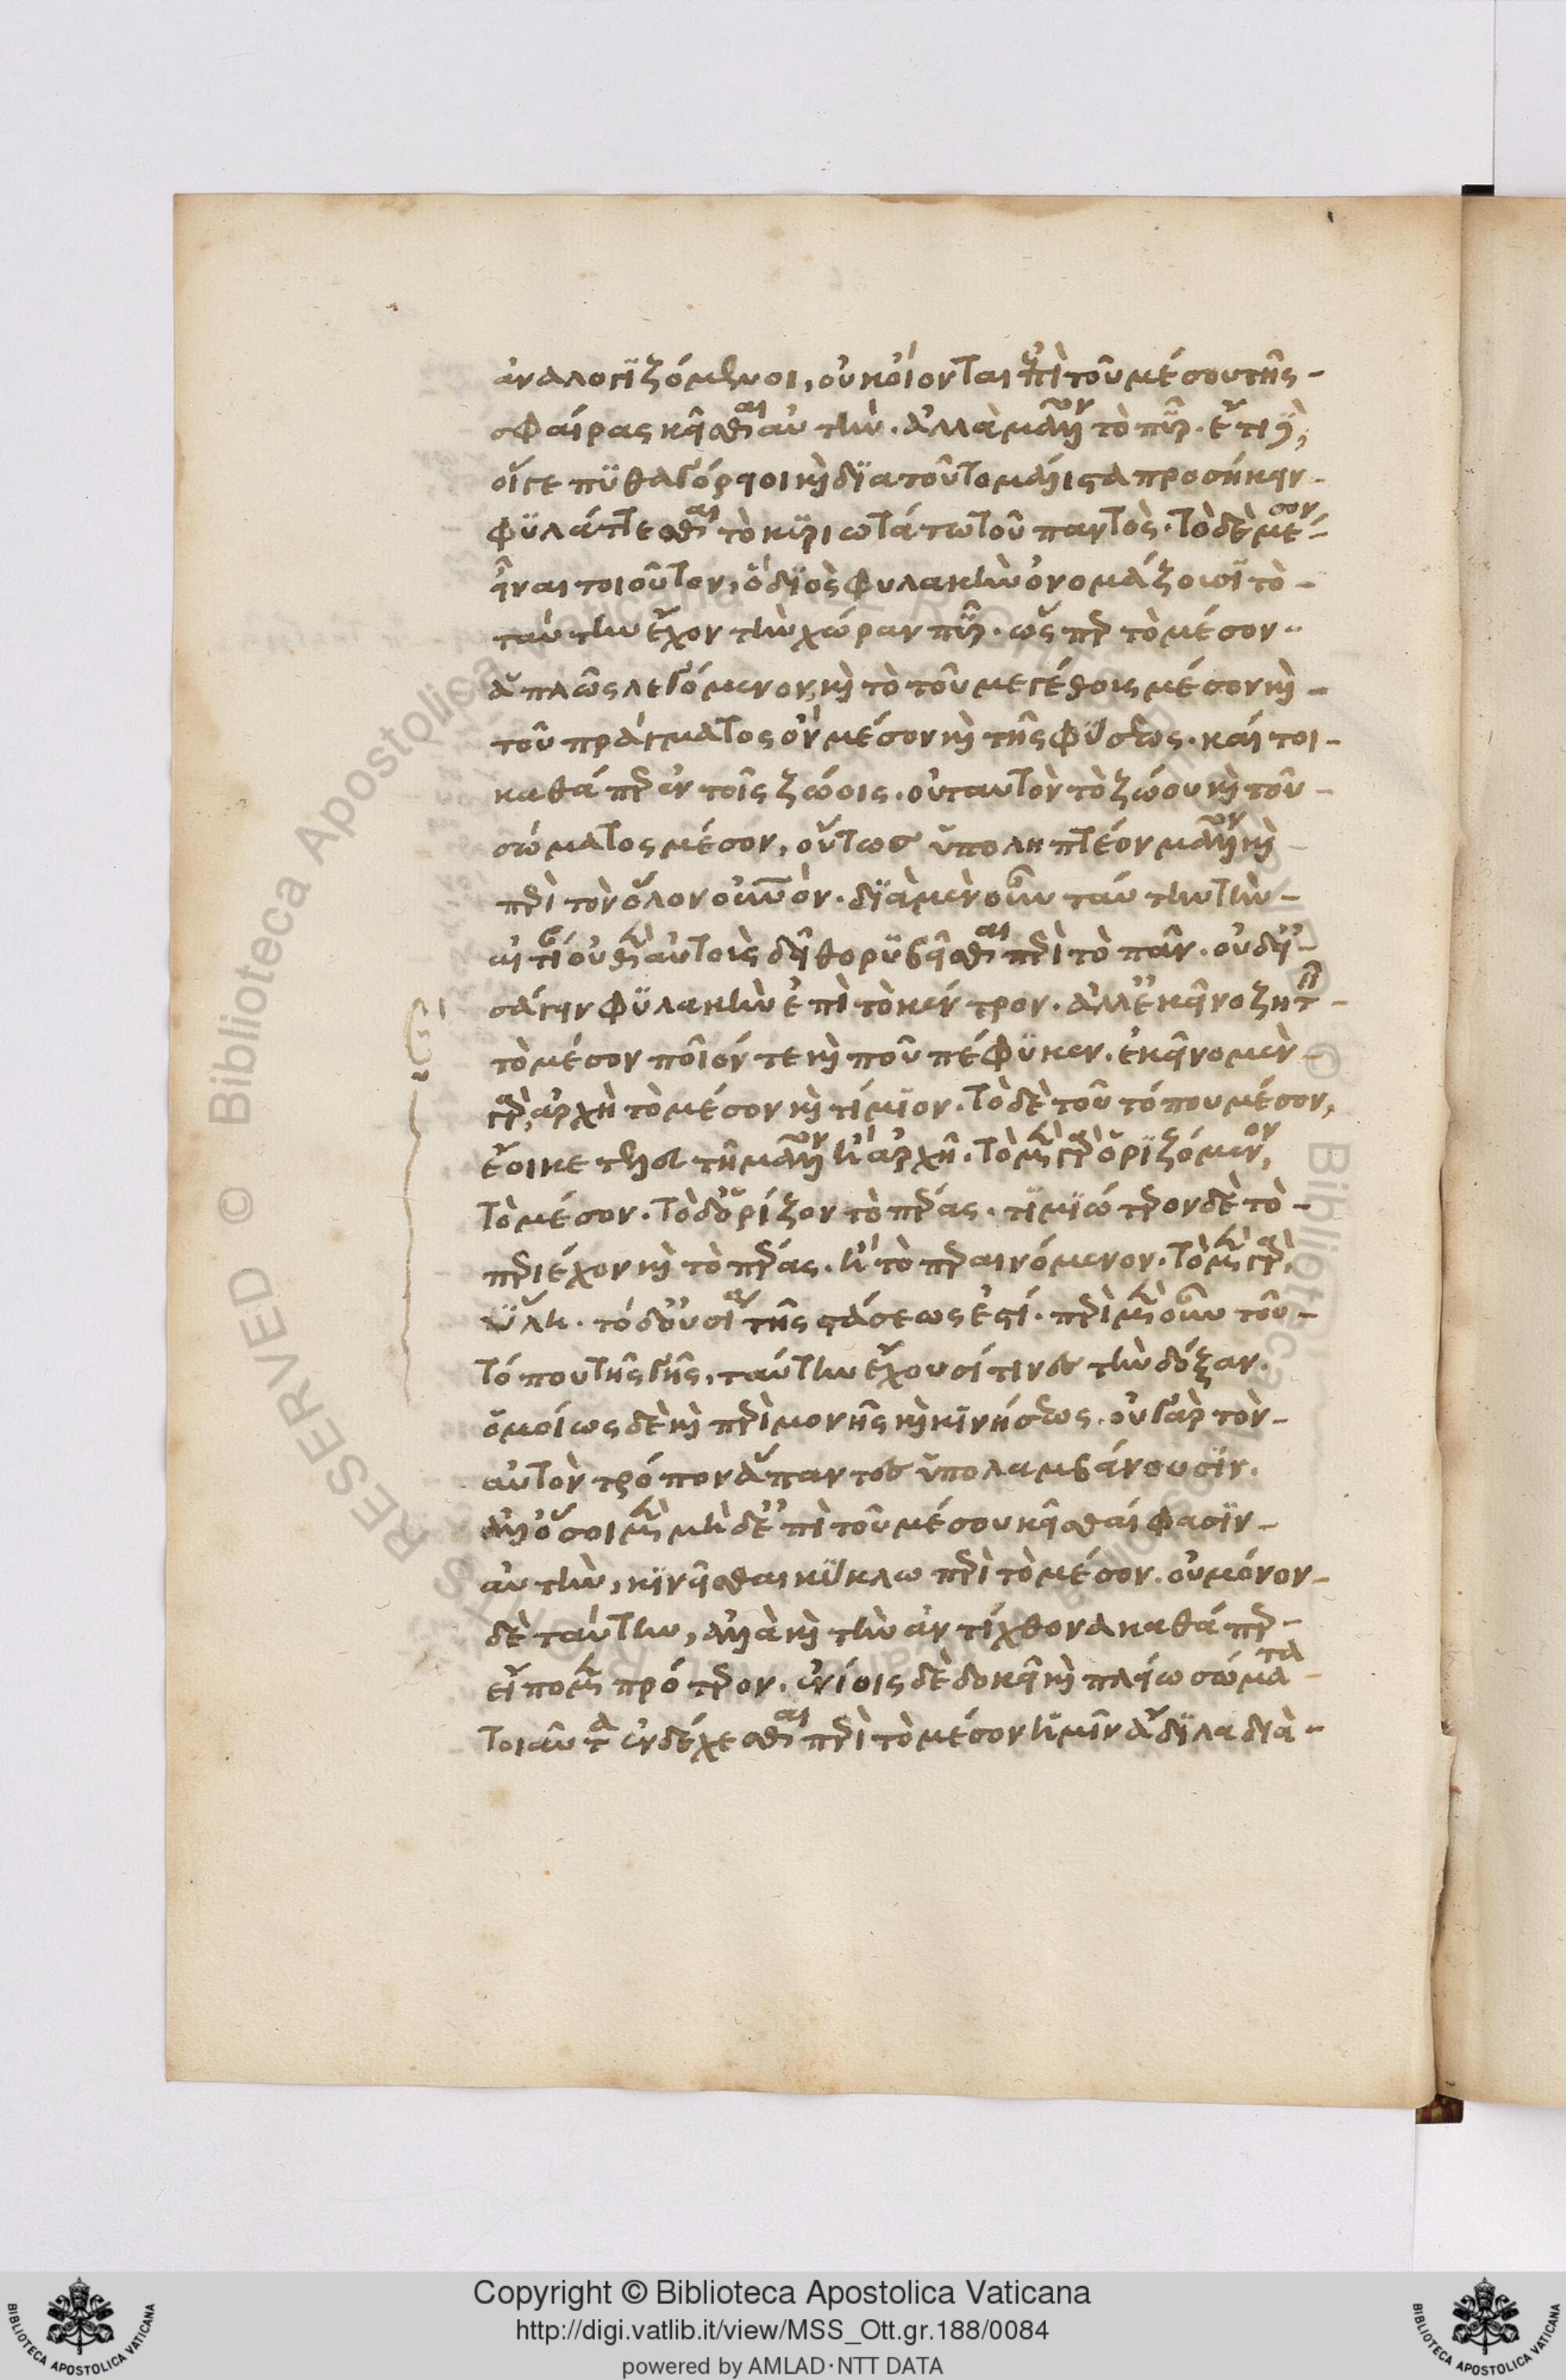 ἀναλογιζόμενοι, οὐκ οἴονται ἐπὶ τοῦ μέσου τῆς
σφαίρας κεῖσθαι αὐτήν. ἀλλὰ μᾶλλον τὸ πῦρ. ἔτι δ',
οἵγε πυθαγόρειοι καὶ διὰ τοῦτο μάλιστα προσήκειν
φυλάττεσθαι τὸ κυριωτάτω τοῦ παντός. τὸ δὲ μέσον
εἶναι τοιοῦτον, ὃ διὸς φυλακὴν ὀνομάζουσι τὸ
ταύτην ἔχον τὴν χώραν πῦρ. ὥσπερ τὸ μέσον
ἁπλῶς λεγόμενον, καὶ τὸ τοῦ μεγέθους μέσον καὶ
τοῦ πράγματος ὂν μέσον καὶ τῆς φύσεως. καί τοι
καθάπερ ἐν τοῖς ζώοις. οὐ ταυτὸν τὸ ζώου καὶ τοῦ
σώματος μέσον, οὕτως ὑποληπτέον μᾶλλον καὶ
περὶ τὸν ὅλον οὐρανόν. διὰ μὲν οὖν ταύτην τὴν
αἰτίαν οὐδὲν αὐτοὺς δεῖ θορυβεῖσθαι περὶ τὸ πᾶν. οὐδ' εἰ
σάγειν φυλακὴν ἐπὶ τὸ κέντρον. ἀλλ' ἐκεῖνο ζητεῖν
τὸ μέσον ποῖόν τε καὶ ποῦ πέφυκεν. ἐκεῖνο μὲν
γὰρ, ἀρχὴ τὸ μέσον καὶ τίμιον. τὸ δὲ τοῦ τόπου μέσον,
ἔοικε τελευτῇ μᾶλλον ἢ ἀρχῇ. τὸ μὲν γὰρ ὁριζόμενον,
τὸ μέσον. τὸ δ' ὁρίζον τὸ πέρας. τιμιώτερον δὲ τὸ
περιέχον καὶ τὸ πέρας. ἢ τὸ περαινόμενον. τὸ μὲν γὰρ,
ὕλη. τὸ δ' οὐσία τῆς στάσεως ἐστί. περὶ μὲν οὖν τοῦ
τόπου τῆς γῆς, ταύτην ἔχουσί τινες τὴν δόξαν.
ὁμοίως δὲ καὶ περὶ μονῆς καὶ κινήσεως. οὐ γὰρ τὸν
αὐτὸν τρόπον ἅπαντες ὑπολαμβάνουσιν.
ἀλλ' ὅσοι μὲν μὴ δ' ἐπὶ τοῦ μέσου κεῖσθαί φασιν
αὐτήν, κινεῖσθαι κύκλω περὶ τὸ μέσον. οὐ μόνον
δὲ ταύτην, ἀλλὰ καὶ τὴν ἀντίχθονα καθάπερ
εἴπομεν πρότερον. ἐνίοις δὲ δοκεῖ καὶ πλείω σώματα
τοιαῦτα ἐνδέχεσθαι περὶ τὸ μέσον ἡμῖν ἄδηλα διὰ
Copyright © Biblioteca Apostolica Vaticana
http://digi.vatlib.it/view/MSS_Ott.gr.188/0084
powered by AMLAD·NTT DATA